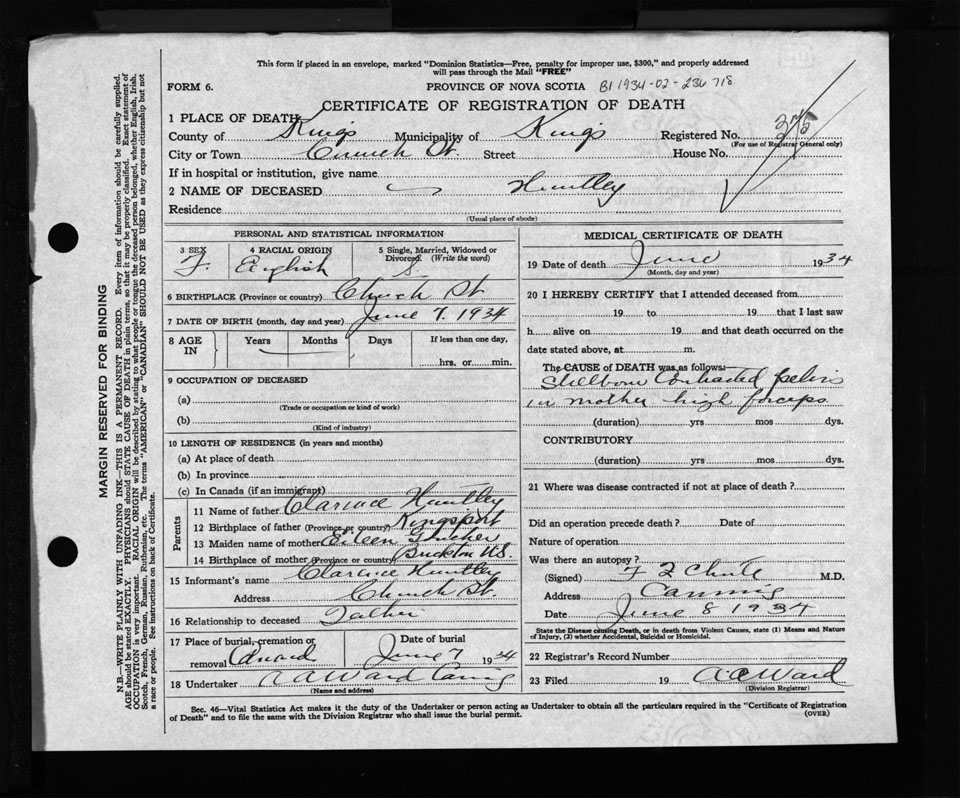 This form if placed in an envelope, marked "Dominion Statistics—Free, penalty for improper use, $300," and properly addressed
will pass through the Mail "FREE"
FORM 6. PROVINCE OF NOVA SCOTIA B1 1934-02-236718
CERTIFICATE OF REGISTRATION OF DEATH
1 PLACE OF DEATH
County of Kings Municipality of Kings Registered No. 375
(For use of Registrar General only)
City or Town Church St. Street House No.
If in hospital or institution, give name
2 NAME OF DECEASED Huntley
Residence
(Usual place of abode)
PERSONAL AND STATISTICAL INFORMATION
3 SEX 4 RACIAL ORIGIN 5 Single, Married, Widowed or
Divorced. (Write the word)
F. English S.
6 BIRTHPLACE (Province or country) Church St
7 DATE OF BIRTH (month, day and year) June 7. 1934
8 AGE IN Years Months Days If less than one day,
hrs. or min.
9 OCCUPATION OF DECEASED
(a)
(Trade or occupation or kind of work)
(b)
(Kind of industry)
10 LENGTH OF RESIDENCE (in years and months)
(a) At place of death
(b) In province
(c) In Canada (if an immigrant)
Parents
11 Name of father Clarence Huntley
12 Birthplace of father (Province or country) Kingsport
13 Maiden name of mother Eileen
14 Birthplace of mother (Province or country) N.S.
15 Informant's name Clarence Huntley
Address Church St.
16 Relationship to deceased Father
17 Place of burial, cremation or
removal Canard
Date of burial
June 7 1934
18 Undertaker A A Ward Canning
(Name and address)
MEDICAL CERTIFICATE OF DEATH
19 Date of death June 1934
(Month, day and year)
20 I HEREBY CERTIFY that I attended deceased from
19 to 19 that I last saw
h alive on 19 and that death occurred on the
date stated above, at m.
The CAUSE of DEATH was as follows:
Stillborn Contracted pelvis
in mother high forceps.
(duration) yrs mos dys.
CONTRIBUTORY
(duration) yrs mos dys.
21 Where was disease contracted if not at place of death?
Did an operation precede death? Date of
Nature of operation
Was there an autopsy?
(Signed) F Z Chute M.D.
Address Canning
Date June 8 1934
State the Disease causing Death, or in death from Violent Causes, state (1) Means and Nature
of Injury, (2) whether Accidental, Suicidal or Homicidal.
22 Registrar's Record Number
23 Filed 19 A A Ward
(Division Registrar)
Sec. 46—Vital Statistics Act makes it the duty of the Undertaker or person acting as Undertaker to obtain all the particulars required in the "Certificate of Registration
of Death" and to file the same with the Division Registrar who shall issue the burial permit. (OVER)
MARGIN RESERVED FOR BINDING
N.B.—WRITE PLAINLY WITH UNFADING INK—THIS IS A PERMANENT RECORD. Every item of information should be carefully supplied.
AGE should be stated EXACTLY. PHYSICIANS should STATE CAUSE OF DEATH in plain terms, so that it may be properly classified. Exact statement of
OCCUPATION is very important. RACIAL ORIGIN will be described by stating to what people or tongue the deceased person belonged, whether English, Irish,
Scotch, French, German, Russian, Ruthenian, etc. The terms "AMERICAN" or "CANADIAN" SHOULD NOT BE USED as they express citizenship but not
a race or people. See instructions on back of Certificate.